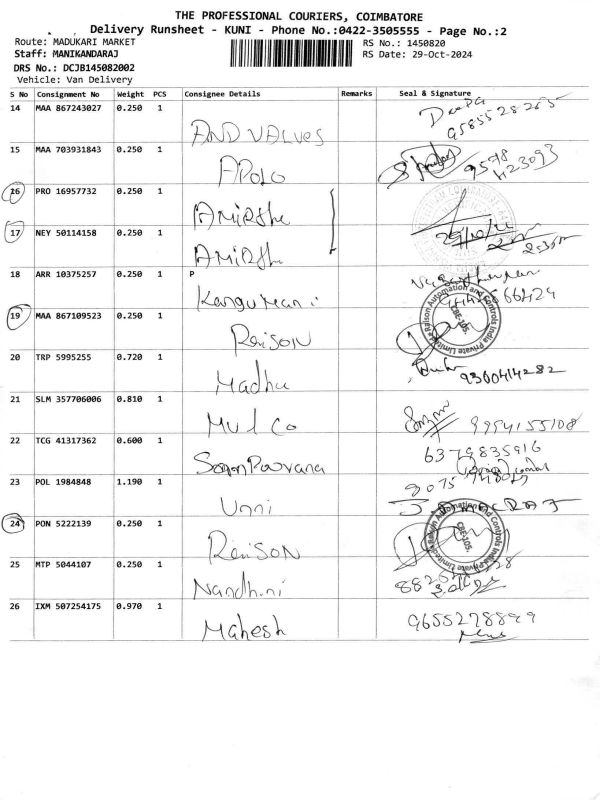 THE PROFESSIONAL COURIERS, COIMBATORE
Delivery Runsheet - KUNI - Phone No.:0422-3505555 - Page No.:2
Route: MADUKARI MARKET
RS No.: 1450820
Staff: MANIKANDARAJ
RS Date: 29-Oct-2024
DRS No.: DCJB145082002
Vehicle: Van Delivery
S No Consignment No Weight PCS Consignee Details Remarks Seal & Signature
14 MAA 867243027 0.250 1 AND VALVES
15 MAA 703931843 0.250 1 APOLO
16 PRO 16957732 0.250 1
17 NEY 50114158 0.250 1
18 ARR 10375257 0.250 1 P
19 MAA 867109523 0.250 1 RaiSON
Raison Automation and Controls India Private Limited
CBE-105.
20 TRP 5995255 0.720 1 Madhu 9300414282
21 SLM 357706006 0.810 1 Mul Co
22 TCG 41317362 0.600 1 6379835916
23 POL 1984848 1.190 1 Unni
24 PON 5222139 0.250 1 RaiSON
Raison Automation and Controls India Private Limited
CBE-105.
25 MTP 5044107 0.250 1 Nandhini
26 IXM 507254175 0.970 1 Mahesh 9655278899